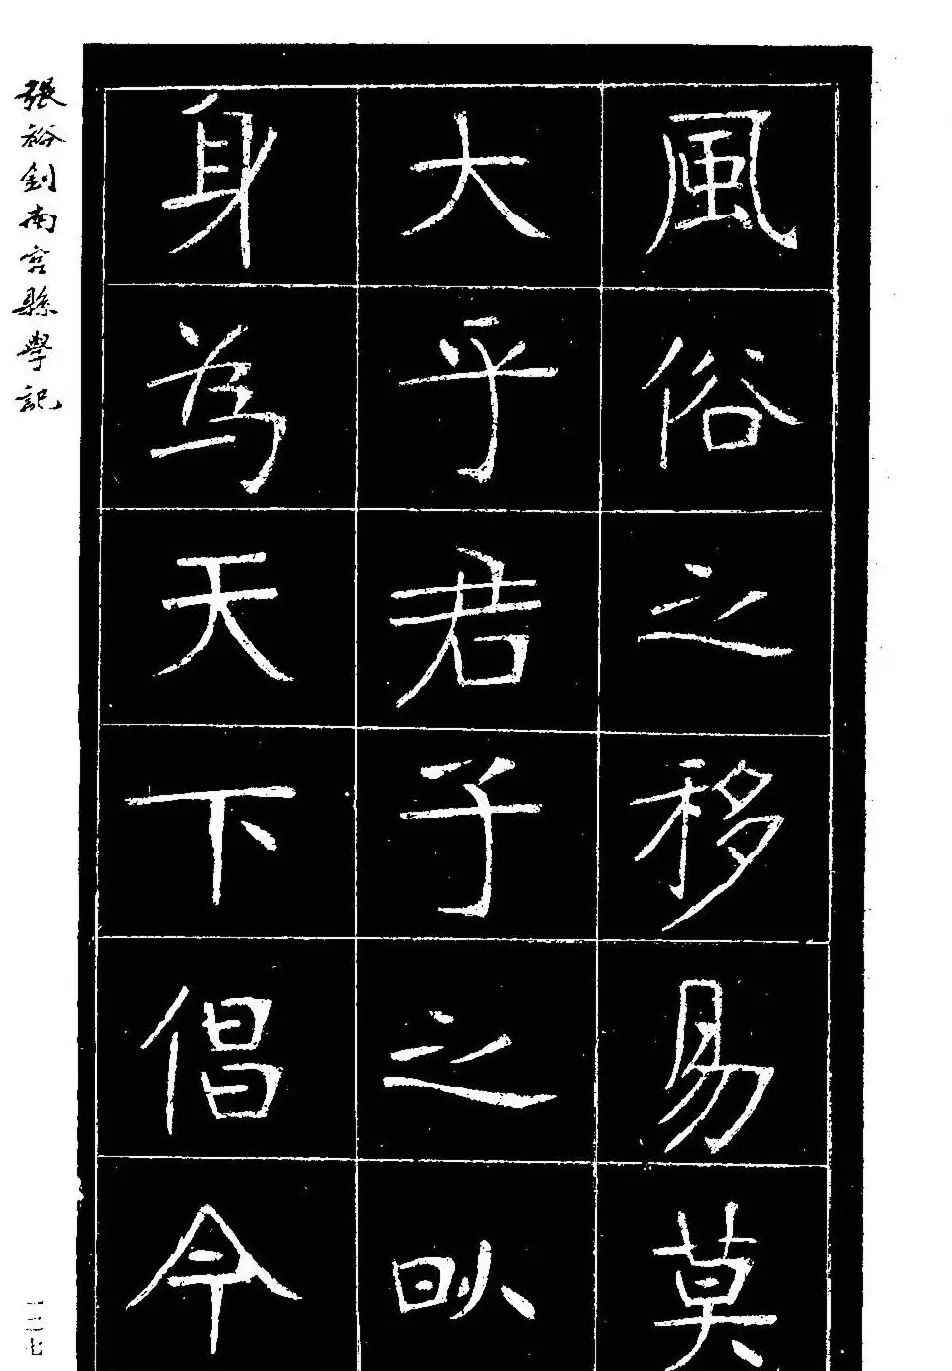 風俗之移易莫
大乎君子之㕥
身為天下倡今
張裕釗南宮縣學記
一三七